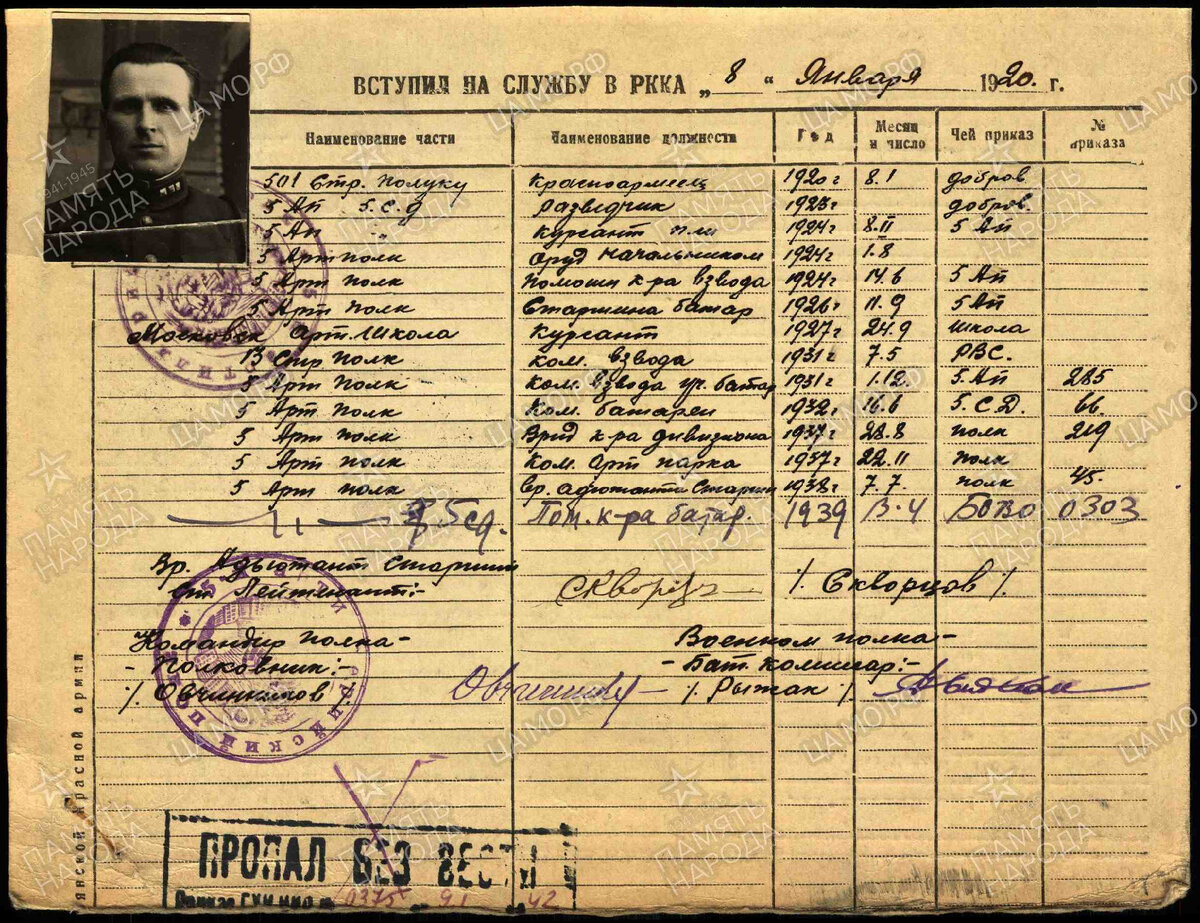 ВСТУПИЛ НА СЛУЖБУ В РККА „ 8 “ Января 1920 г.
Наименование части Наименование должности Год Месяц и число Чей приказ № приказа
501 Стр. полуку красноармеец 1920 г 8.1 добров
5 Ап 5.с.д разведчик 1923 г добров.
5 Ап „ курсант 1924 г 8.II 5 Ап
5 Арт полк Оруд начальником 1924 г 1.8
5 Арт полк Помощн к-ра взвода 1924 г 14.6 5 Ап
5 Арт полк Старшина батар 1926 г 11.9 5 Ап
Московск Арт. Школа Курсант 1927 г 24.9 школа
13 Стр полк ком. взвода 1931 г 7.5 РВС.
8 Арт полк ком. взвода уч. батар 1931 г 1.12. 5. Ап 285
5 Арт полк ком. батареи 1932 г 16.6 5. С.Д. 66.
5 Арт полк Врид к-ра дивизиона 1937 г 28.8 полк 219
5 Арт полк Ком. Арт парка 1937 г 22.11 полк
5 Арт полк вр. адъютанта Старшего 1938 г 7.7. полк 45.
— 11 — 5 сд. Пом. к-ра батар. 1939 13.4 БОВО 0303
Вр. Адъютант старший
ст Лейтенант:- Скворцов /. Скворцов /.
Командир полка- Военком полка-
- Полковник:- - Бат. комиссар:-
/. Овчинников Овчинников /. Рыжак /.
янской Красной армии
ПРОПАЛ БЕЗ ВЕСТИ
Приказ ГУК НКО № 0375 9.1 42
1941-1945
ПАМЯТЬ
НАРОДА
ЦАМО.РФ